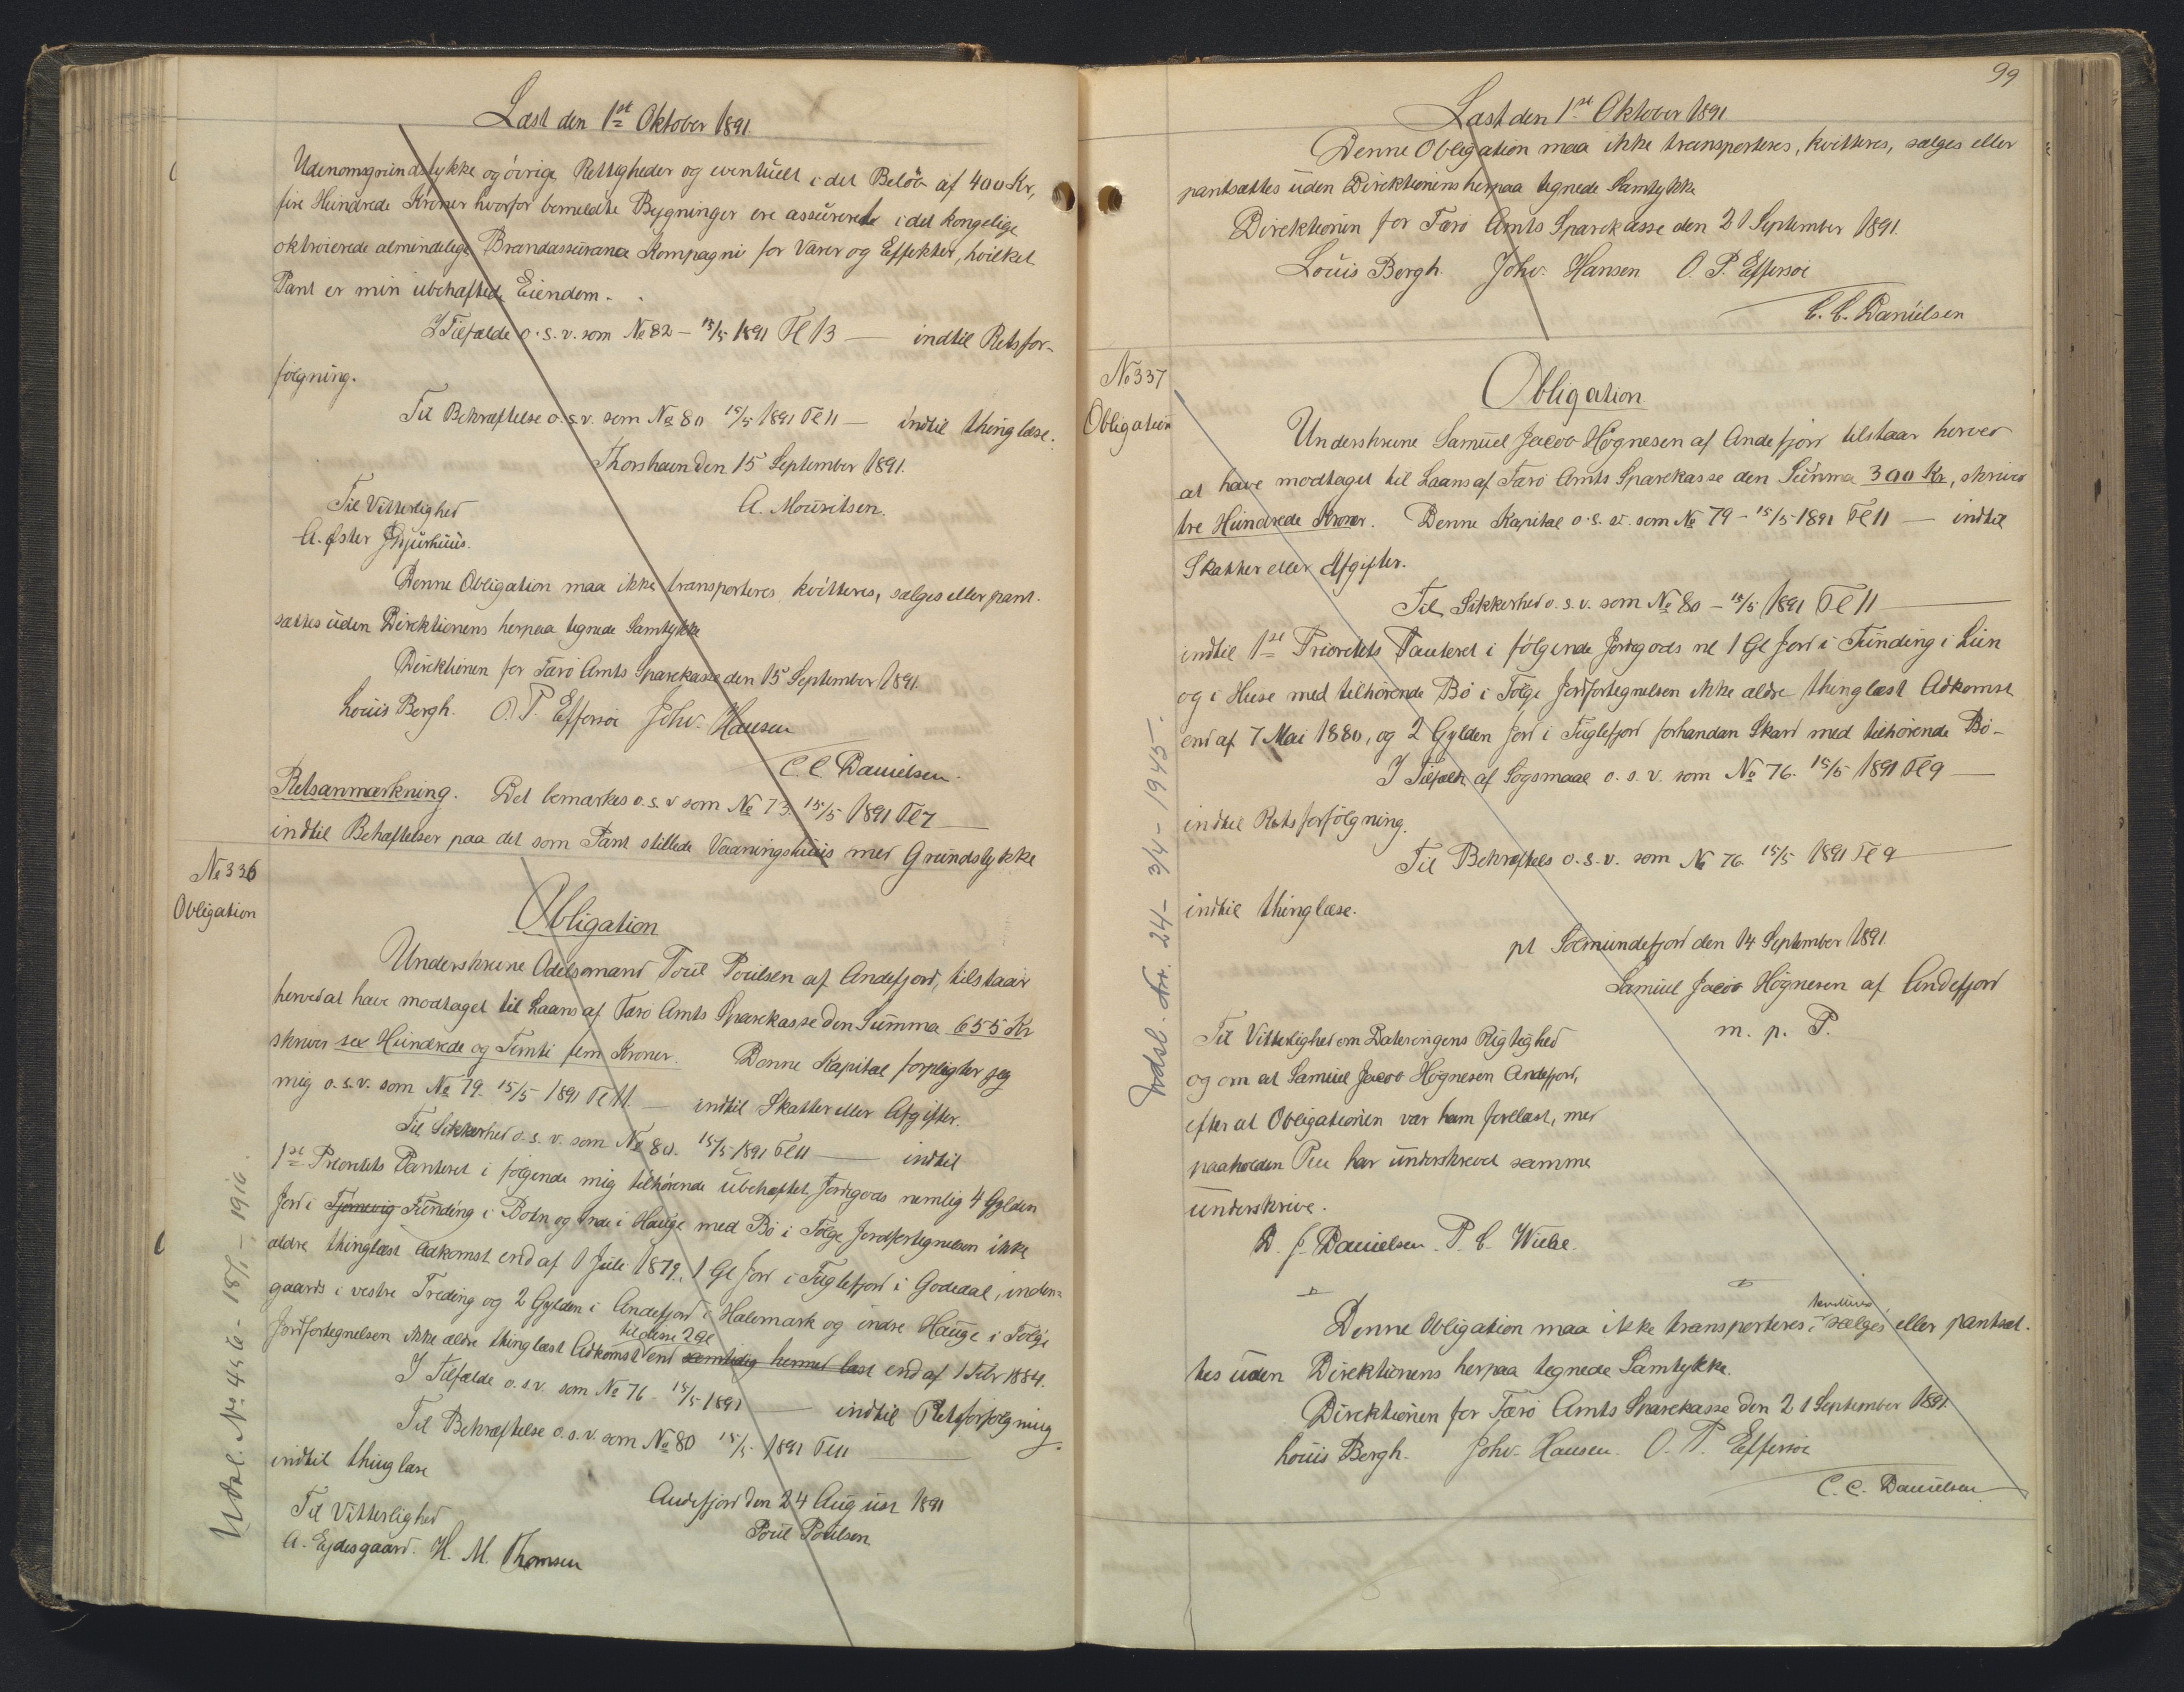 Læst den 1ste Oktober 1891
Udenomsgrundstykke og øvrige Rettigheder og eventuelt i det Beløb af 400 Kr,
fire Hundrede Kroner hvorfor bemeldte Bygninger ere assurerede i det kongelige
oktroierede almindelige Brandassurance Kompagni for Varer og Effekter, hvilket
Pant er min ubehæftede Eiendom.
I Tilfælde o.s.v. som No 82 - 15/5 1891 Fl 13 — indtil Retsfor-
følgning.
Til Bekræftelse o.s.v. som No 80 15/5 1891 Fl 11 — indtil thinglæse.
Thorshavn den 15 September 1891.
A. Mouritsen.
Til Vitterlighed
A. Øster Djurhuus.
Denne Obligation maa ikke transporteres, kvitteres, sælges eller pant-
sættes uden Direktionens herpaa tegnede Samtykke
Direktionen for Færø Amts Sparekasse den 15 September 1891.
Louis Bergh. O. P. Effersøe Johv. Hansen
C. C. Danielsen.
Retsanmærkning. Det bemærkes o.s.v som No 73. 15/5 1891 Fl 7 —
indtil Behæftelser paa det som Pant stillede Vaaningshuus med Grundstykke
No 336
Obligation
Obligation
Underskrevne Odelsmand Poul Poulsen af Andefjord, tilstaar
herved at have modtaget til Laans af Færø Amts Sparekasse den Summa 655 Kr
skriver sex Hundrede og Femti fem Kroner. Denne Kapital forpligter jeg
mig o.s.v. som No 79. 15/5 1891 Fl 11. — indtil Skatter eller Afgifter.
Til Sikkerhed o.s.v. som No 80. 15/5 1891 Fl 11 — indtil
1ste Prioritets Panteret i følgende mig tilhørende ubehæftet Jordegods nemlig 4 Gylden
Jord i Tjørnevig Funding i Botn og Inni i Hauge med Bø i Følge Jordfortegnelsen ikke
ældre thinglæst Adkomst end af 1 Juli 1879, 1 Gl Jord i Fuglefjord i Godedal, inden-
gaards i vestre Treding og 2 Gylden i Andefjord i Halemark og indre Hauge i Følge
Jordfortegnelsen ikke ældre thinglæst Adkomst til disse 2 Gl end samtidig hermed læst end af 1 Febr 1884.
I Tilfælde o.s.v. som No 76 - 15/5 1891 — indtil Retsforfølgning.
Til Bekræftelse o.s.v. som No 80 15/5 1891 Fl 11 —
indtil thinglæse
Andefjord den 24 August 1891
Poul Poulsen
Til Vitterlighed
A. Eydesgaard. H. M. Thomsen
Udsl. No 456 - 18/1 - 1916.
99
Læst den 1ste Oktober 1891
Denne Obligation maa ikke transporteres, kvitteres, sælges eller
pantsættes uden Direktionens herpaa tegnede Samtykke
Direktionen for Færø Amts Sparekasse den 21 September 1891.
Louis Bergh. Johv. Hansen O. P. Effersøe
C. C. Danielsen
No 337
Obligation
Obligation
Underskrevne Samuel Jacob Høgnesen af Andefjord tilstaar herved
at have modtaget til Laans af Færø Amts Sparekasse den Summa 300 Kr, skriver
tre Hundrede Kroner. Denne Kapital o.s.v. som No 79 - 15/5 1891 Fl 11 — indtil
Skatter eller Afgifter.
Til Sikkerhed o.s.v. som No 80 - 15/5 1891 Fl 11 —
indtil 1ste Prioritets Panteret i følgende Jordegods nl 1 Gl Jord i Funding i Lun
og i Huse med tilhørende Bø i Følge Jordfortegnelsen ikke ældre thinglæst Adkomst
end af 7 Mai 1880, og 2 Gylden Jord i Fuglefjord forhandan Skard med tilhørende Bø -
I Tilfælde af Søgsmaal o.s.v. som No 76. 15/5 1891 Fl 9 —
indtil Retsforfølgning.
Til Bekræftels o.s.v. som No 76 15/5 1891 Fl 9 —
indtil thinglæse.
pt Solmundefjord den 14 September 1891.
Samuel Jacob Høgnesen af Andefjord
m. p. P.
Til Vitterlighed om Dateringens Rigtighed
og om at Samuel Jacob Høgnesen Andefjord,
efter at Obligationen var ham forelæst, med
paaholden Pen har underskrevet samme
underskrive.
D. J. Danielsen. P. C. Wiebe.
Denne Obligation maa ikke transporteres, kvitteres sælges eller pantsæt-
tes uden Direktionens herpaa tegnede Samtykke.
Direktionen for Færø Amts Sparekasse den 21 September 1891.
Louis Bergh. Johv. Hansen. O. P. Effersøe
C. C. Danielsen
Udsl. Nr. 24 - 3/4 - 1945.